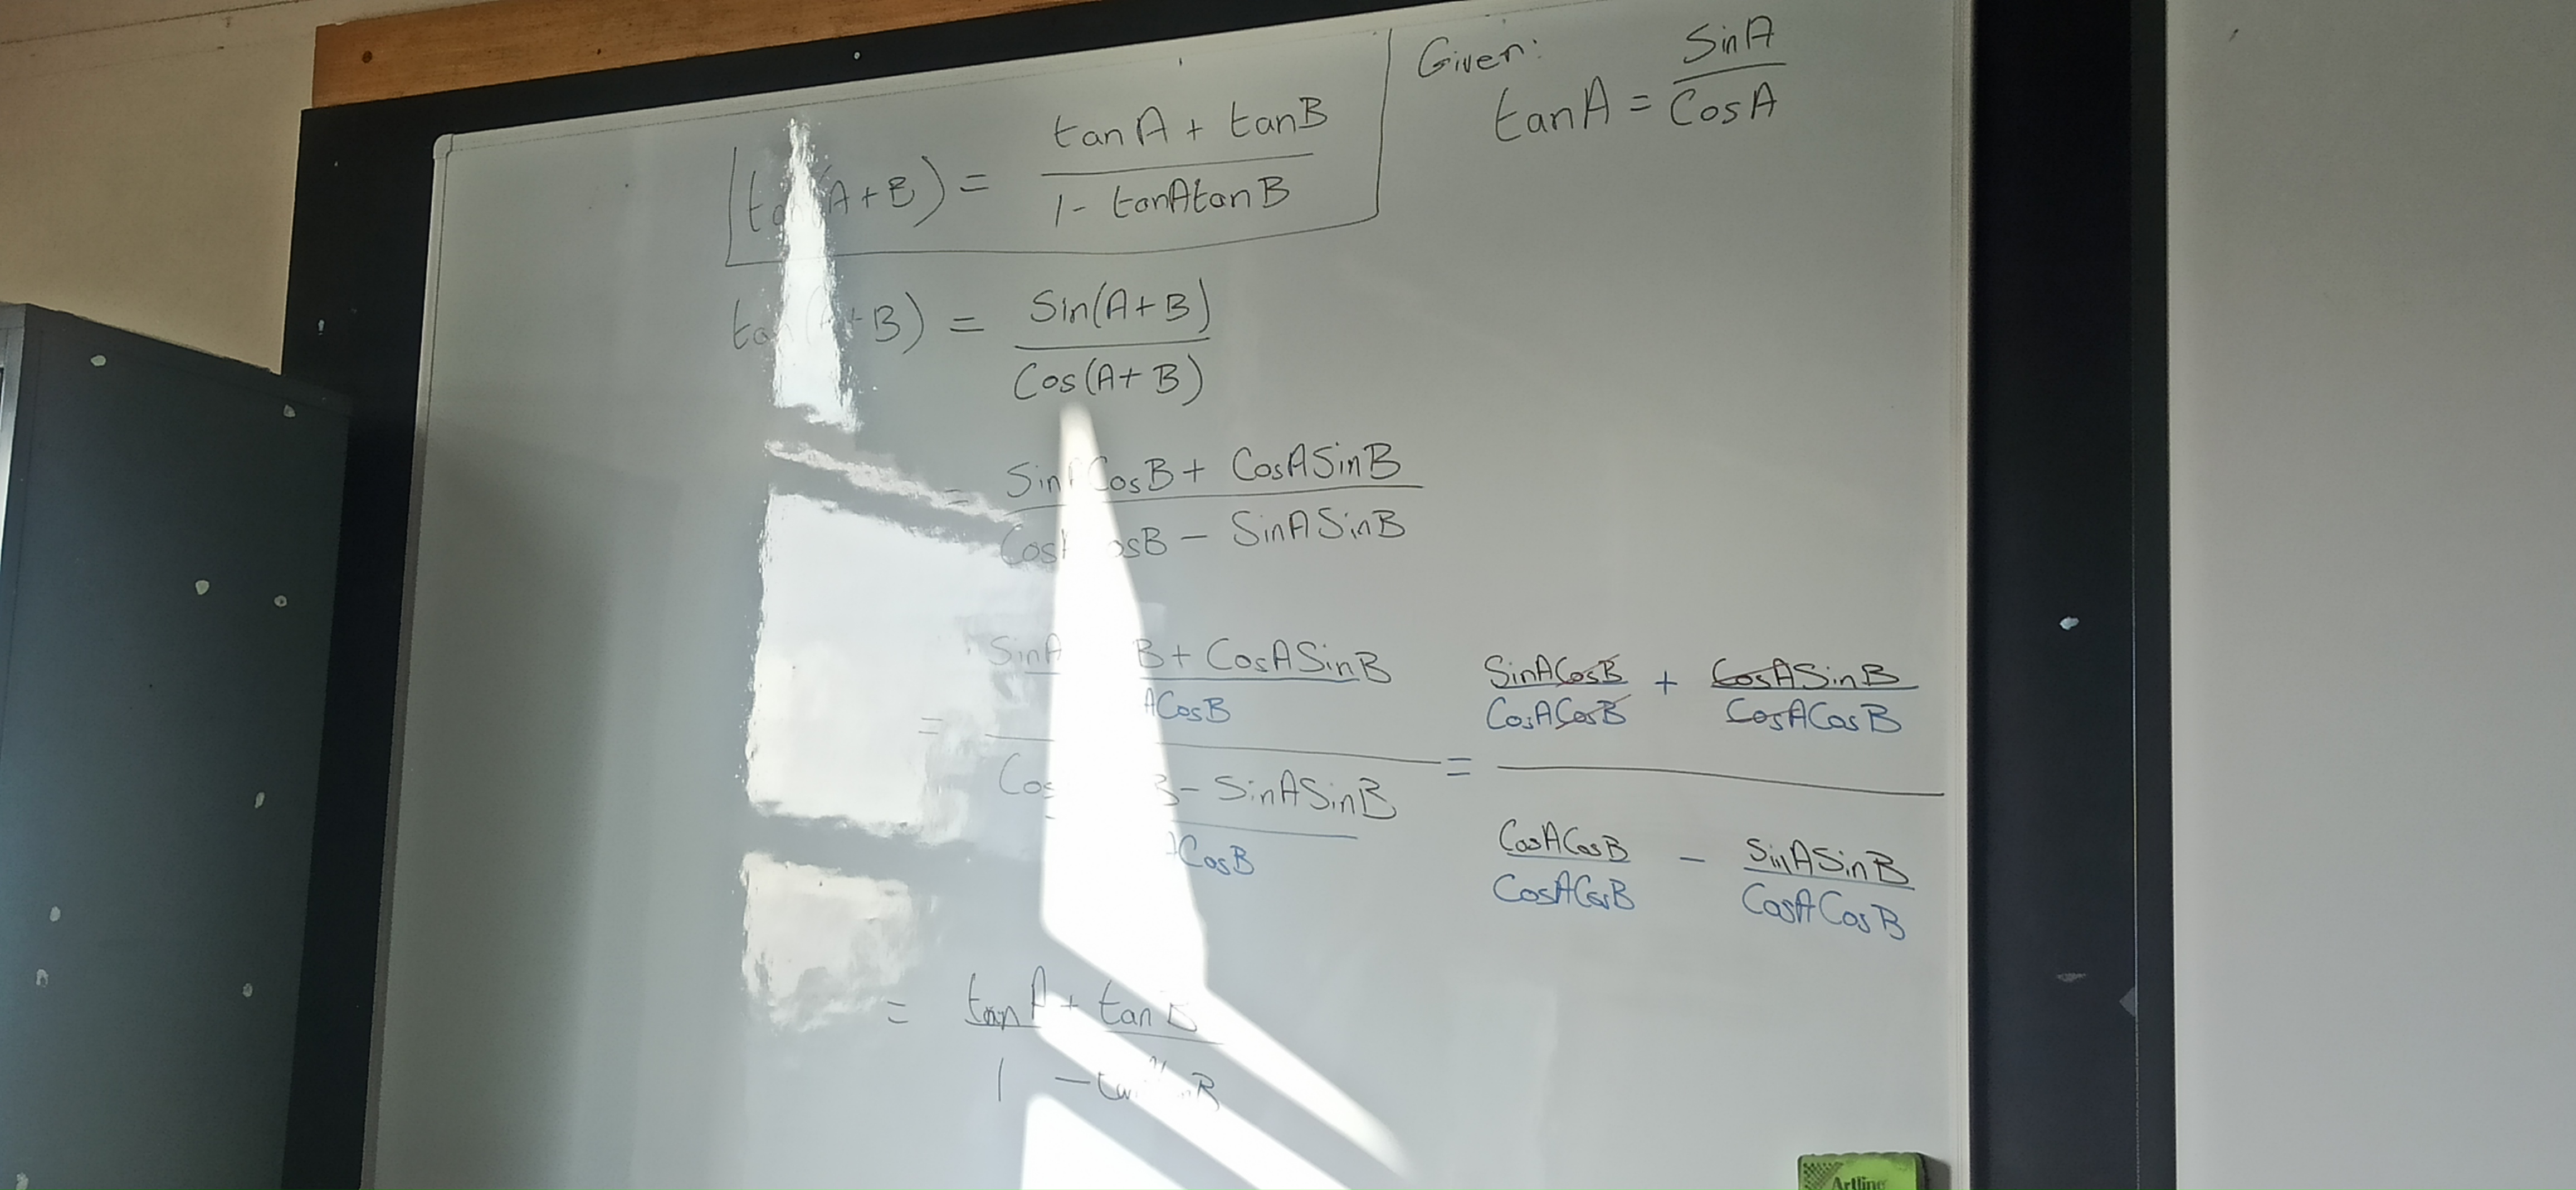 Given:
tan A = Sin A / Cos A
(A+B) = tan A + tan B / 1 - tan A tan B
tan( +B) = Sin(A+B) / Cos(A+B)
= Sin Cos B + Cos A Sin B
Cos B - Sin A Sin B
= Sin A B + Cos A Sin B / A Cos B
Cos B - Sin A Sin B / Cos B
= Sin A Cos B / Cos A Cos B + Cos A Sin B / Cos A Cos B
Cos A Cos B / Cos A Cos B - Sin A Sin B / Cos A Cos B
= tan A + tan B
1 - tan B
Artline